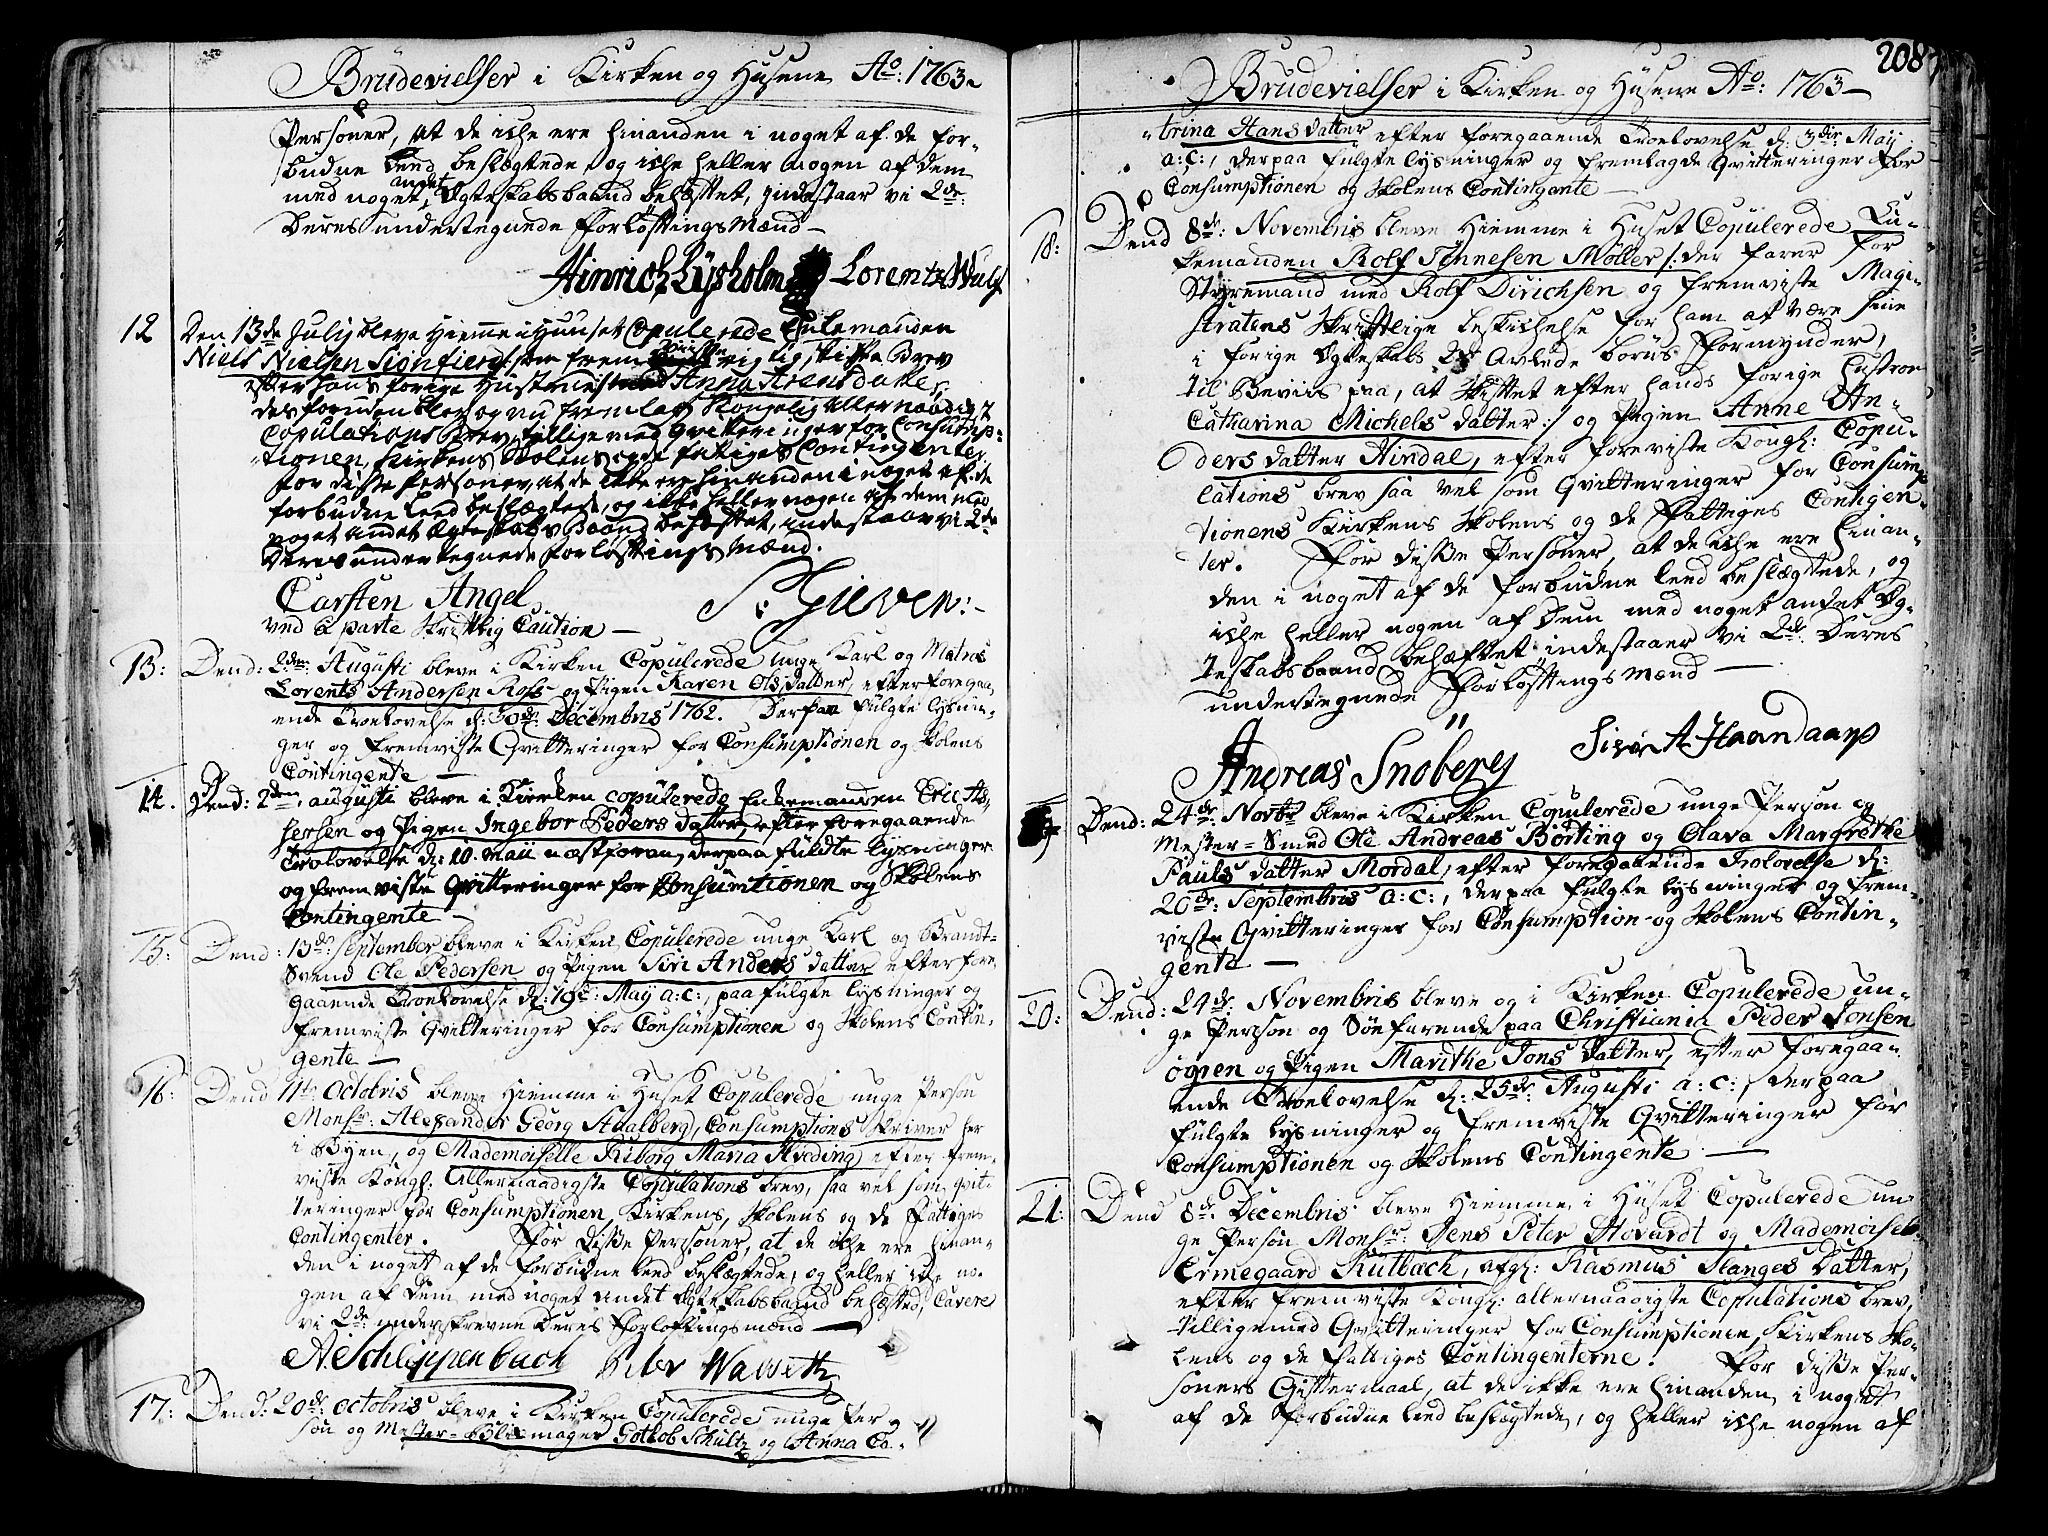 Brudevielser i Kirken og Husene Ao: 1763
Personer, at de iche ere hinanden i noget af de for-
budne Leed beslægtede, og iche heller nogen af dem
med noget andet Ægteskabs baand behæftet, indestaar vi 2de
Deres undertegnede Forløftings Mænd
Hinrich Lysholm Lorentz Wulf
12 Den 13de July bleve Hiemme i Huuset Copulerede Enkemanden
Niels Nielsen Sionfierd som fremviiste rigtig skifte Brev
efter hans forige Hustrue Anna Arentsdatter,
desforuden blev og nu fremlagt Kongelig Allernaadigst
Copulations Brev tillige med Qvitteringer for Consump-
tionen, Kirkens, Skolens og de fatiges Contingenter.
for disse Personer, at de ikke ere hinanden i noget af de
forbudne Leed beslægtede, og ikke heller nogen af dem med
noget andet Ægteskabs Baand behæftet, indestaar vi 2de
Deres undertegnede Forløftings Mænd.
Carsten Angel
ved a parte Skriftlig Caution
13: Dend: 2den Augusti bleve i Kirken Copulerede unge Karl og Matros
Lorents Andersen Ross og Pigen Karen Olsdatter, efter foregaa-
ende Troelovelse d: 30de Decembris 1762. Derpaa fulgte lysnin-
ger og fremviste Qvitteringer for Consumptionen og Skolens
Contingente
14. Dend: 2den augusti bleve i Kirken copulerede Enkemanden Eric As-
sersen og Pigen Ingebor Peders datter, efter foregaaende
Trolovelse d: 10 Maii næstforan, derpaa fuldte lysninger
og fremviste Qvitteringer for Consumtionen og Skolens
Contingente
15: Dend: 13de September bleve i Kirken Copulerede unge Karl og Brandt-
Svend Ole Pedersen og Pigen Siri Anders datter efter fore
gaaende Troelovelse d: 19de May a:c:, paa fulgte lysninger og
fremviste Qvitteringer for Consumptionen og Skolens Contin-
gente
16: Dend 11te Octobris bleve Hiemme i Huset Copulerede unge Person
Monsr: Alexander Georg Staalberg, Consumptions Skriver her
i Byen, og Mademoiselle Kuborg Maria Hveding efter frem-
viste Kongl: Allernaadigste Copulations brev, saa vel som qvit-
teringer for Consumptionen, Kirkens, Skolens og de Fattiges
Contingenter. For disse Personer, at de iche ere hinan-
den i noget af de forbudne leed beslægtede, og heller iche no-
gen af dem med noget andet Ægteskabsbaand behæfted, Cavere
vi 2de underskrevne Deres Forløftingsmænd
A Schleppenbach Peter
17: Dend: 20de octobris bleve i Kirken Copulerede unge Per
son og Mester Gotlob Schultz og Anna Ca-
208
Brudevielser i Kirken og Husene Ao: 1763
trina Hans datter efter foregaaende Troelovelse d: 3die Maij
a:c:, derpaa fulgte lysninger og fremlagde Qvitteringer for
Consumptionen og Skolens Contingente
18: Dend 8de Novembris bleve Hiemme i Huset Copulerede En-
kemanden Rolf Tønnesen Møller /: der farer for
Styremand med Rolf Dirichsen og fremviste Magi-
stratens Skriftlige beskichelse for ham at være sine
i forige Ægteskab 2de Avlede børns Formynder,
til Beviis paa, at Skiftet efter hands forige Hustroe
Catharina Michels datter :/ og Pigen Anne An-
ders datter Hindal, efter foreviste Kongl: Copu-
lations brev saa vel som Qvitteringer for Consump
tionens Kirkens Skolens og de Fattiges Contigen-
ter. For disse Personer, at de iche ere hinan-
den i noget af de forbudne leed beslægtede, og
iche heller nogen af Dem med noget andet Æg-
teskabsbaand behæftet indestaaer vi 2de Deres
undertegnede Forløftings Mænd
Andreas Snoberg
Dend: 24de Novbr bleve i Kirken Copulerede unge Person og
Mester-Smed Ole Andreas Børting og Olava Margrethe
Pauls datter Mordal, efter foregaaende Trolovelse d:
26de Septembris a:c:, derpaa fulgte lysninger og frem-
viste Qvitteringer for Consumption og Skolens Contin-
gente
20: Dend: 24de Novembris bleve og i Kirken Copulerede un-
ge Person og Søefarende paa Christiania Peder Jonsen
ogsen og Pigen Marithe Jons datter, efter foregaa-
ende Troelovelse d: 25de Augusti a:c:, derpaa
fulgte lysninger og fremviste Qvitteringer for
Consumptionen og Skolens Contingente
21: Dend 8de Decembris bleve Hiemme i Huset Copulerede un-
ge Person Monsr: Jens Peter Stovardt og Mademoisel-
Ermegaard Kulbach, afgl: Rasmus Stanges Datter,
efter fremviste Kongl: allernaadigste Copulations brev,
tillige med Qvitteringer for Consumptionen, Kirkens Sko-
lens og de Fattiges Contingenterne. For disse Per-
soners Giftermaal, at de ikke ere hinanden i noget
af de Forbudne leed beslægtede, og heller iche nogen af